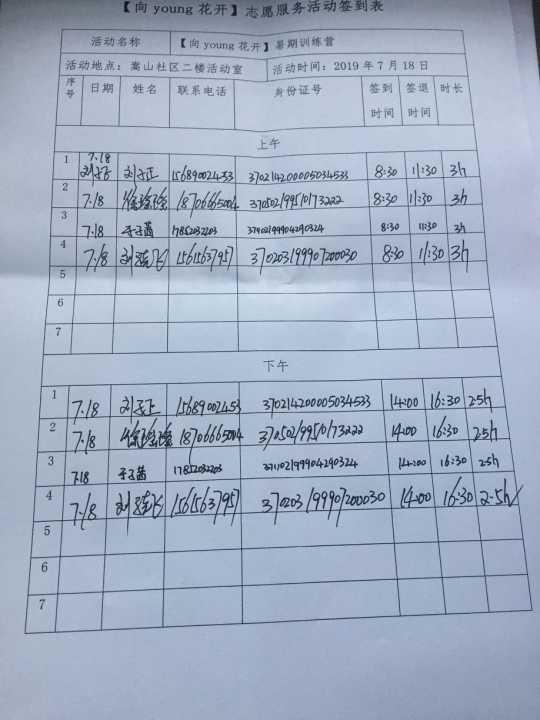 【向 young 花开】志愿服务活动签到表
活动名称 【向 young 花开】暑期训练营
活动地点：嵩山社区二楼活动室 活动时间：2019 年 7 月 18 日
序号 日期 姓名 联系电话 身份证号 签到时间 签退时间 时长
上午
1 7.18 刘子正 15689002453 370214200005034533 8:30 11:30 3h
2 7.18 18706665004 370502199510173222 8:30 11:30 3h
3 7.18 17852032203 8:30 11:30 3h
4 7.18 刘 15615637957 370203199907200030 8:30 11:30 3h
5
6
7
下午
1 7.18 刘子正 15689002453 370214200005034533 14:00 16:30 2.5h
2 7.18 18706665004 370502199510173222 14:00 16:30 2.5h
3 7.18 17852032203 14:00 16:30 2.5h
4 7.18 刘 15615637957 370203199907200030 14:00 16:30 2.5h
5
6
7